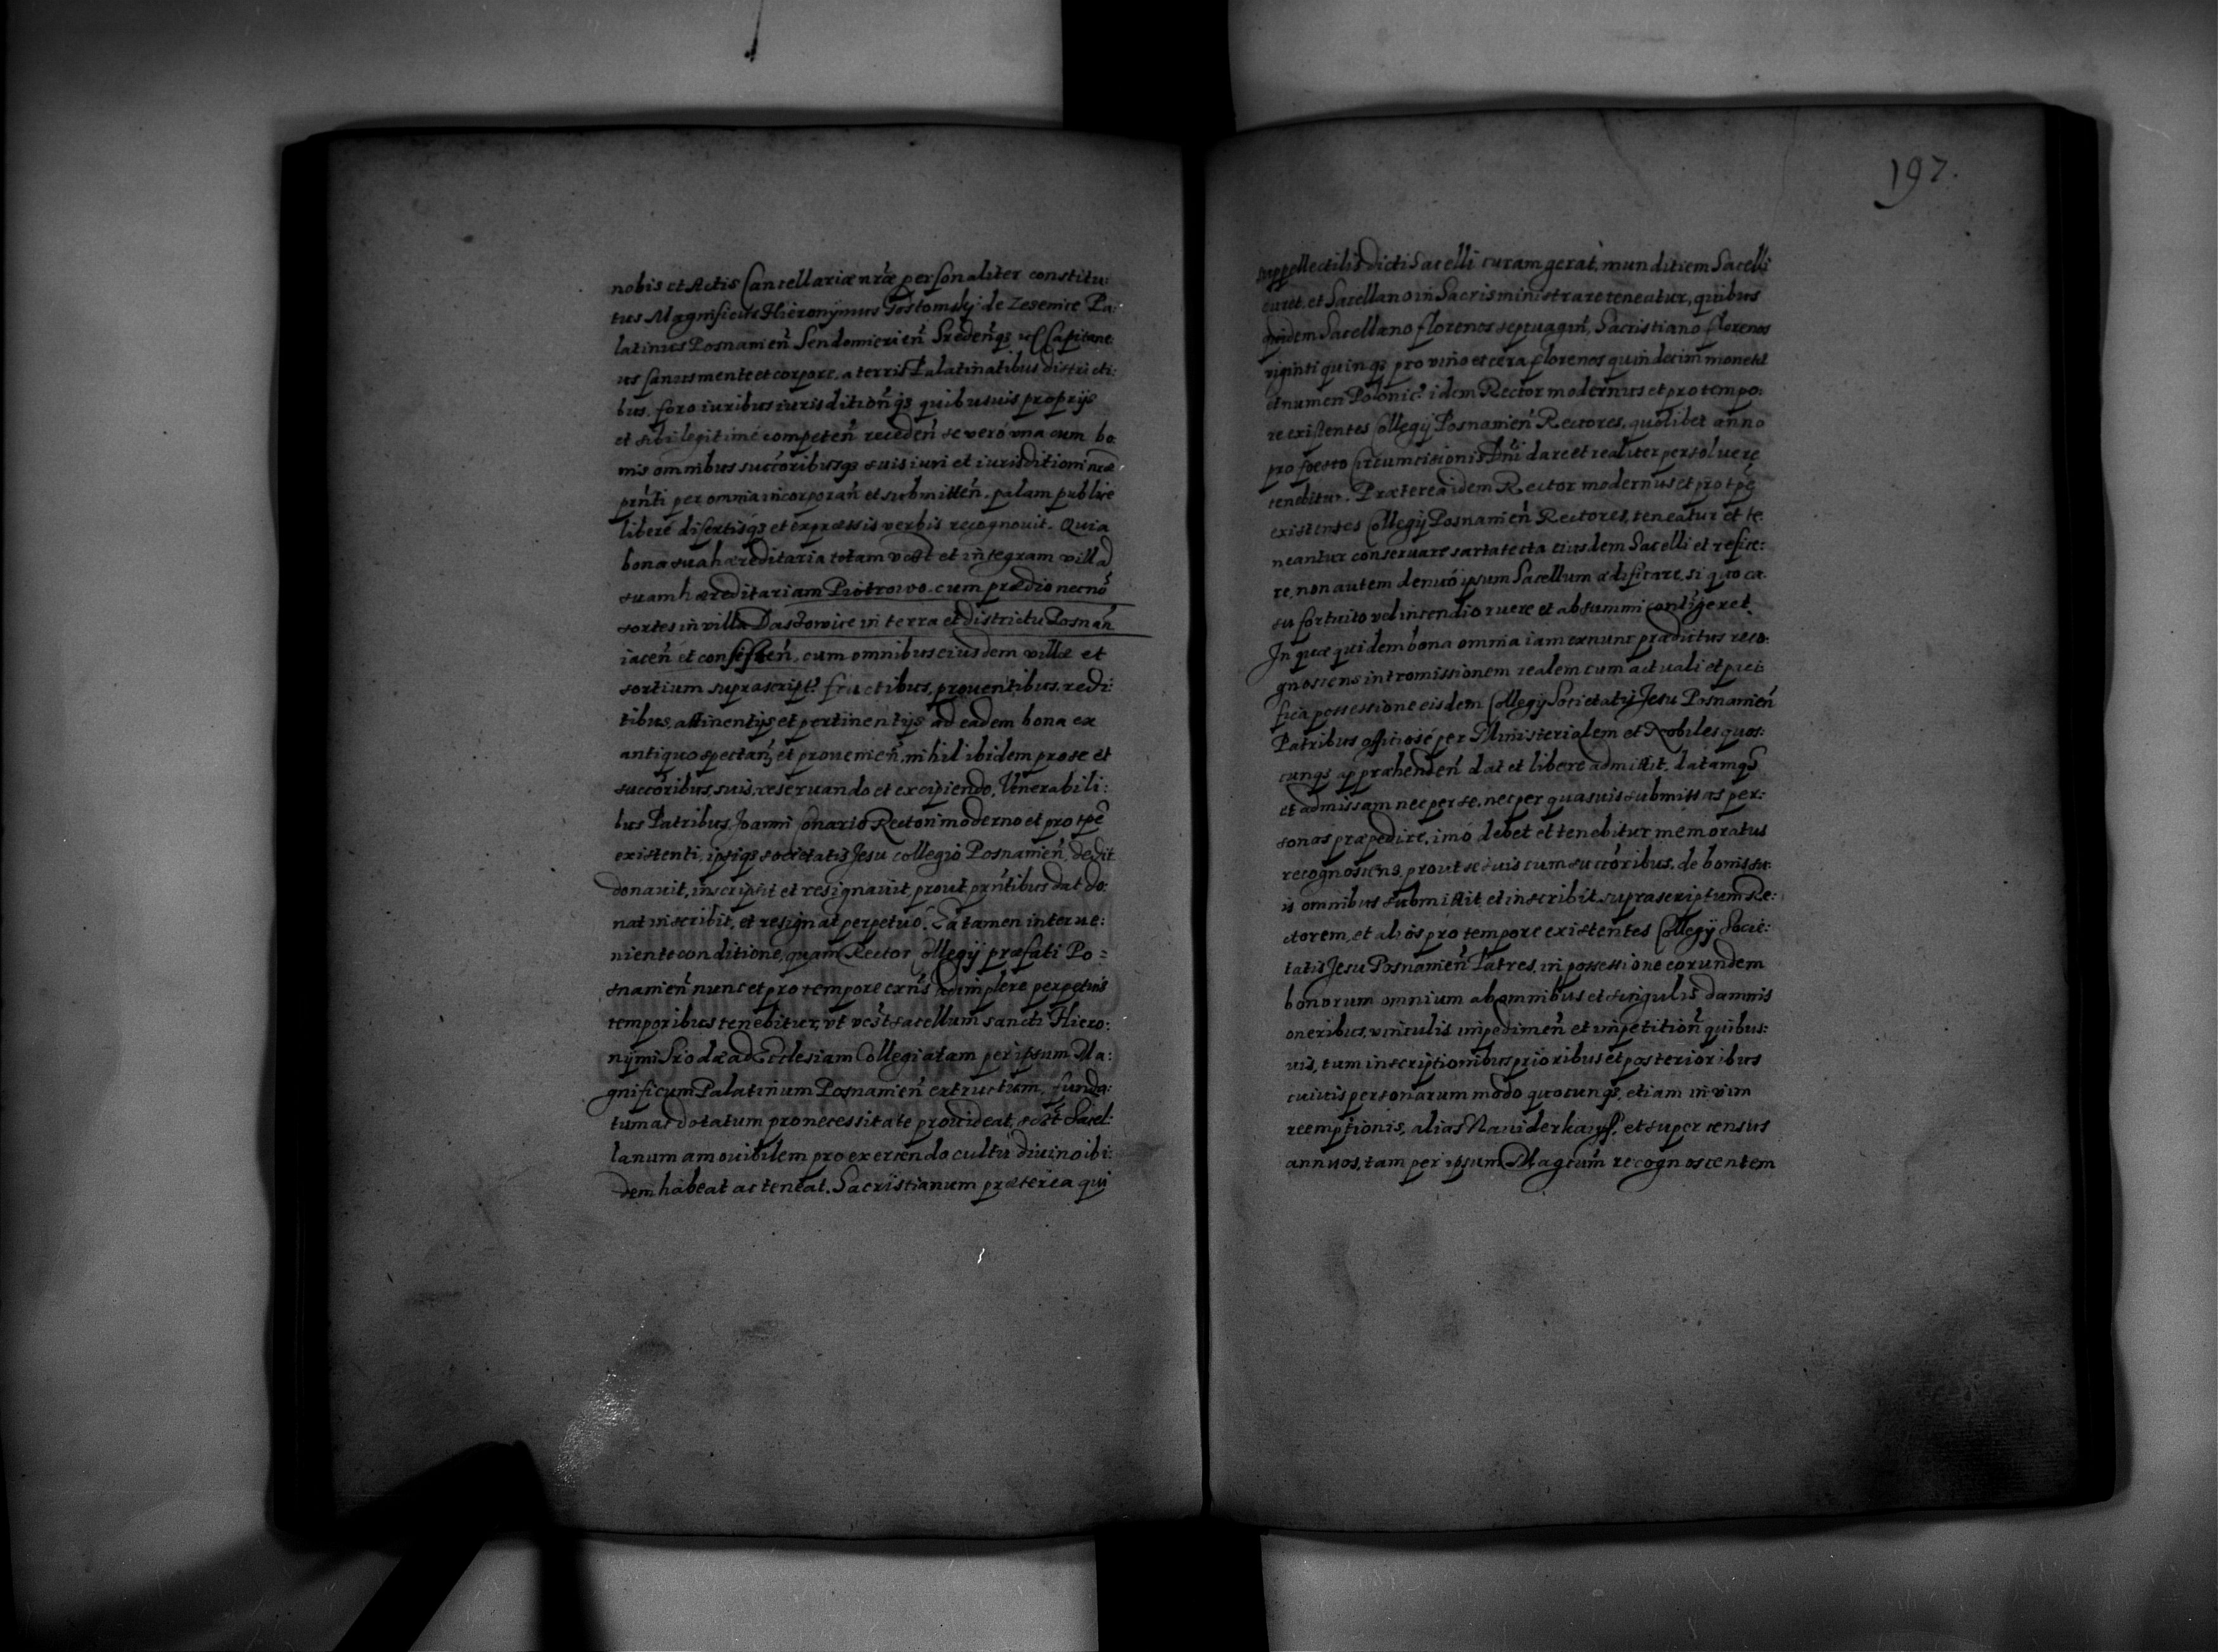 nobis et Actis Cancellariæ nr̃æ personaliter constitu:
tus Magnificus Hieronymus Gostomskj de Lezenice Pa:
latinus Posnanien̄ Sendomirien̄ Sreden̄q3 Capitane
us sanus mente et corpore, a terris Palatinatibus districti:
bus, foro iuribus iurisdition̄q3 quibusuis proprijs
et sibi legitimé competen̄ receden̄ se veró vna cum bo
nis omnibus succõribusq3 suis iuri et iurisditioni nr̃æ
prñti per omnia incorporan̄ et submitten̄. palam publice
liberé disertisq3 et expræssis verbis recognouit. Quia
bona sua hæreditaria totam et integram villã
suam hæreditariam Piotrowo. cum prædio necnõ
sortes in villa Daszowice in terra et districtu Posnan̄
iacen̄ et consisten̄, cum omnibus eiusdem villæ et
sortium suprascript? fructibus, prouentibus, redi:
tibus, attinentijs et pertinentijs ad eadem bona ex
antiquo spectan̄, et prouenien̄ nihil ibidem pro se et
succõribus suis, reseruando et excipiendo, Venerabili:
bus Patribus, Joanni Conario Rectori moderno et pro tp̃e
existenti, ipsiq3 societatis Jesu collegio Posnanien̄, dedit
donauit, inscripsit et resignauit prout prñtibus dat do:
nat inscribit, et resignat perpetuó. Ea tamen interue:
niente conditione, quam Rector Collegij præfati Po=
snanien̄ nunc et pro tempore exñs adimplere perpetuis
temporibus tenebitur, vt sacellum sancti Hiero:
nymi Srodæ ad Ecclesiam Collegiatam per ipsum Ma:
gnificum Palatinum Posnanien̄ extructum, funda:
tum ac dotatum pro necessitate prouideat, Sacel:
lanum amouibilem pro exercendo cultu diuino ibi:
dem habeat ac teneat. Sacristianum præterea qui
197.
suppellectilis dicti Sacelli curam gerat, munditiem Sacelli
curet, et Sacellano in Sacris ministrare teneatur, quibus
quidem Sacellano florenos septuagin̄, Sacristiano florenos
viginti quinq3 pro vino et cera florenos quindecim monetæ
et numeri Polonic? idem Rector modernus et pro tempo:
re existentes Collegij Posnanien̄ Rectores, quolibet anno
pro foesto Circumcisionis Dñi dare et realiter persoluere
tenebitur. Præterea idem Rector modernus et pro tp̃e
existentes Collegij Posnanien̄ Rectores, teneatur et te
neantur conseruare sartatecta eiusdem Sacelli et refice:
re, non autem denuó ipsum Sacellum ædificare, si quo ca:
su fortuito vel incendio ruere et absummi contigeret.
In quæ quidem bona omnia iam exnunc prædictus reco:
gnoscens intromissionem realem cum actuali et paci
fica possessione eisdem Collegij Societatis Jesu Posnanien̄
Patribus officiosé per Ministerialem et Nobiles quos:
cunq3 appræhenden̄ dat et liberé admittit, datamq3
et admissam nec per se, nec per quasuis submissas per:
sonas præpedire, imó debet et tenebitur memoratus
recognoscens, prout se suis cum succõribus, de bonis su:
is omnibus submittit et inscribit suprascriptum Re:
ctorem, et alios pro tempore existentes Collegij Socie:
tatis Jesu Posnanien̄ Patres, in possessione eorundem
bonorum omnium ab omnibus et singulis damnis
oneribus, vinculis impedimen̄ et impetition̄ quibus:
uis, tum inscriptionibus prioribus et posterioribus
cuiuis personarum modo quocunq3, etiam in vim
reemptionis, alias Nawiderkauff, et super census
annuos, tam per ipsum Magcum̃ recognoscentem